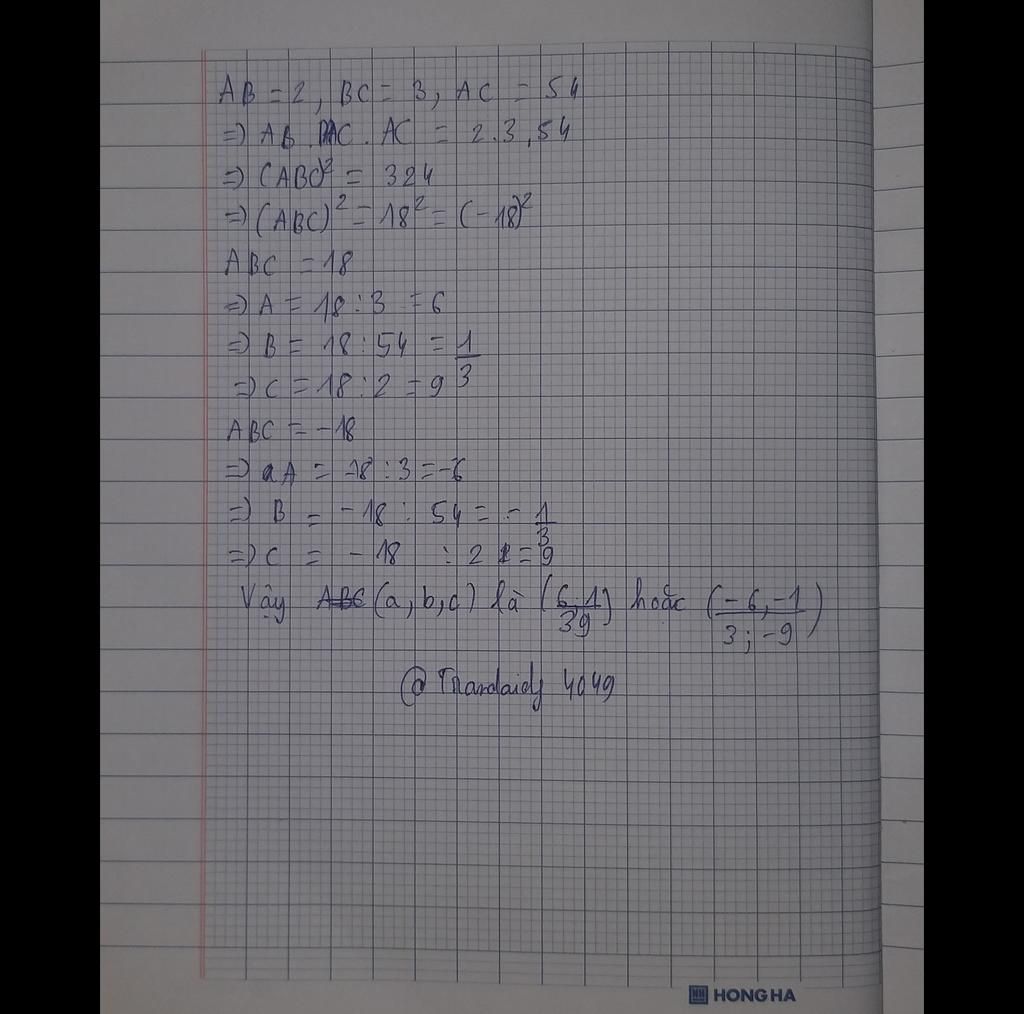 AB = 2, BC = 3, AC = 54
=> AB . BC . AC = 2.3,54
=> (ABC)² = 324
=> (ABC)² = 18² = (-18)²
ABC = 18
=> A = 18 : 3 = 6
=> B = 18 : 54 = 1/3
=> C = 18 : 2 = 9
ABC = -18
=> A = -18 : 3 = -6
=> B = -18 : 54 = - 1/3
=> C = -18 : 2 = 9
Vậy (a, b, c) là (6,1/39) hoặc (-6,-1/3;-9)
4049
HONG HA